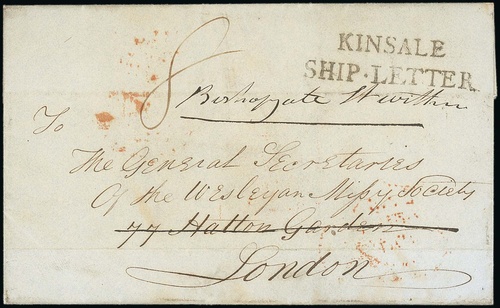 KINSALE
SHIP·LETTER
8
Bishopsgate St within
To
The General Secretaries
Of the Wesleyan Missy Society
77 Hatton Garden
London